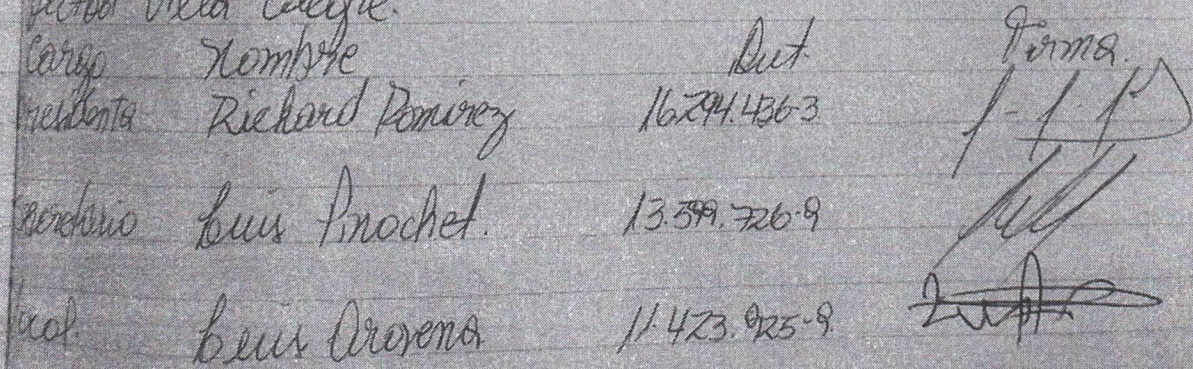 Sector Villa Alegre.
Cargo Nombre Rut. Firma.
Presidenta Richard Ramirez 16.294.436-3
Secretario Luis Pinochet. 13.599.726-9
Luis Aravena 11.423.925-9